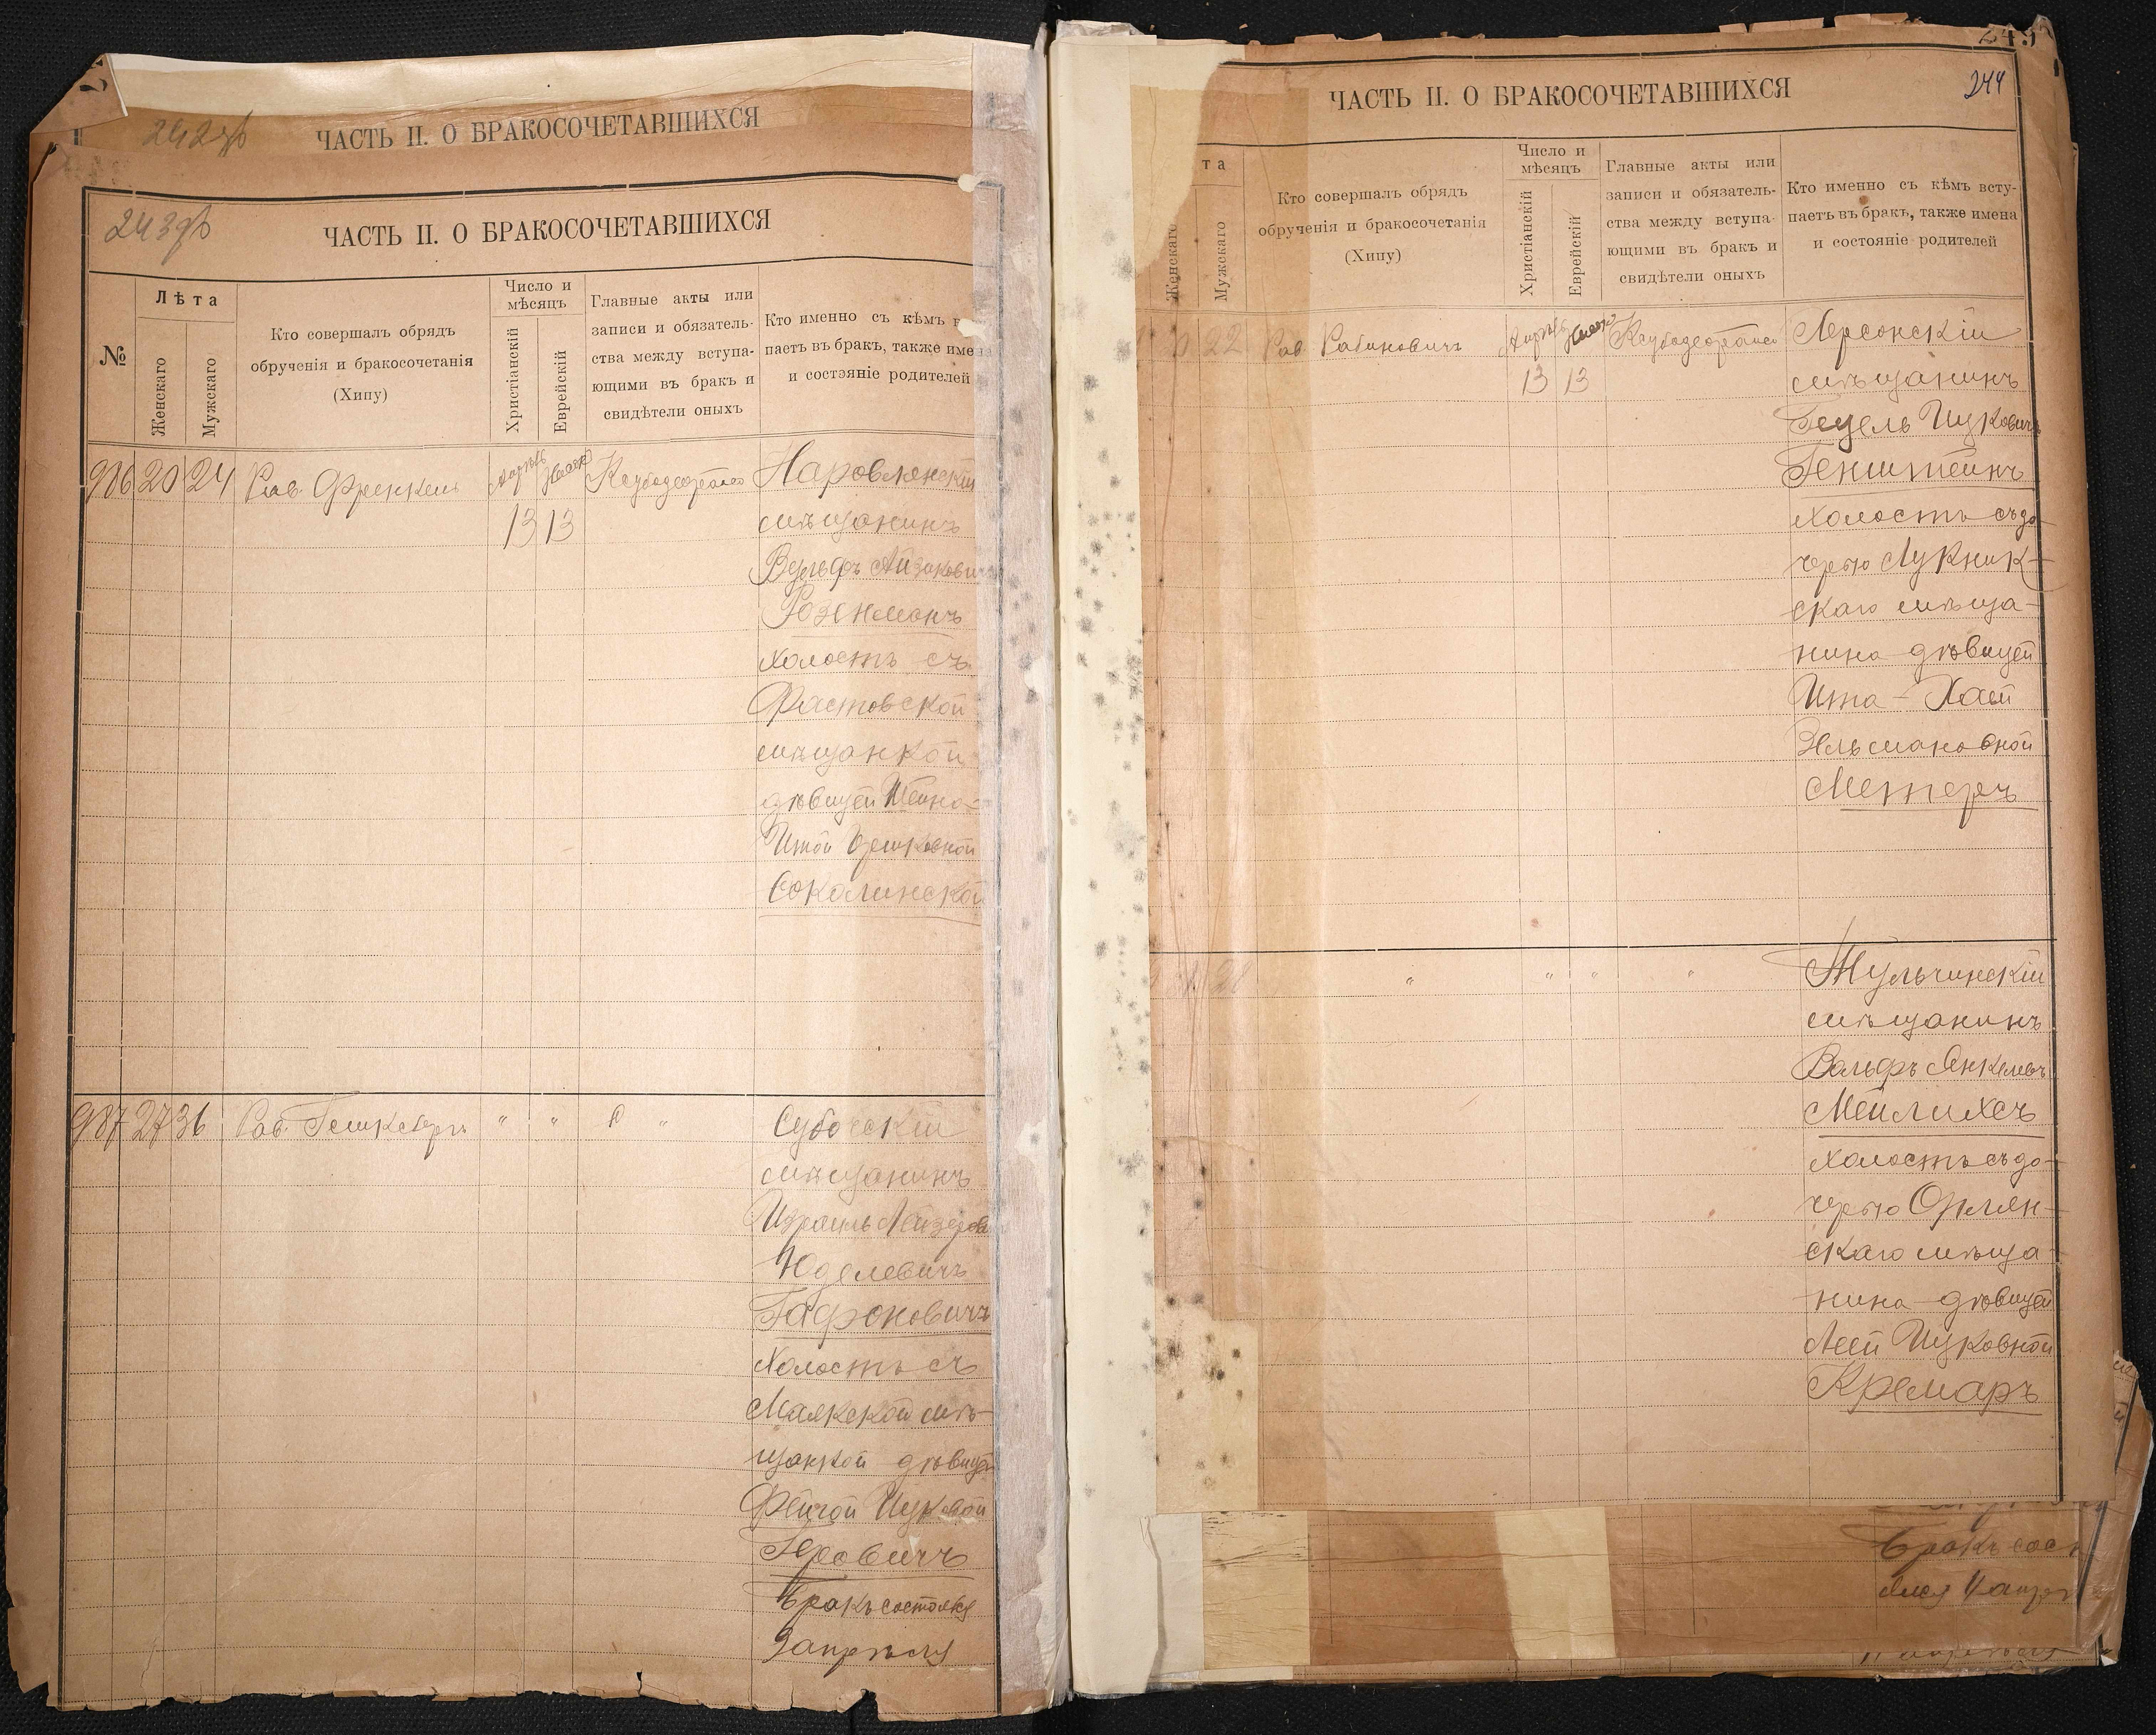 242об
ЧАСТЬ II. О БРАКОСОЧЕТАВШИХСЯ
243об
ЧАСТЬ II. О БРАКОСОЧЕТАВШИХСЯ
№
Лѣта
Женскаго
Мужскаго
Кто совершалъ обрядъ
обрученія и бракосочетанія
(Хипу)
Число и
мѣсяцъ
Христіанскій
Еврейскій
Главные акты или
записи и обязатель-
ства между вступа-
ющими въ бракъ и
свидѣтели оныхъ
Кто именно съ кѣмъ в
паетъ въ бракъ, также имена
и состэяніе родителей
986 20 24 Рав. Френкель
13 13
Наровлянскій
мѣщанинъ
Вульфъ Айзиковичъ
холостъ съ
Фастовской
мѣщанкой
дѣвицей Шейна-
Итой
Соколинской
987 27 36 Рав. " " " "
мѣщанинъ
Израиль Лейзеров
Юделевичъ
Гафоновичъ
холостъ съ
Маякской мѣ-
щанкой дѣвицей
Фейгой Ицковой
Геровичъ
Бракъ состоялся
9 апрѣля
249
244
ЧАСТЬ II. О БРАКОСОЧЕТАВШИХСЯ
та
Женскаго
Мужскаго
Кто совершалъ обрядъ
обрученія и бракосочетанія
(Хипу)
Число и
мѣсяцъ
Христіанскій
Еврейскій
Главные акты или
записи и обязатель-
ства между вступа-
ющими въ бракъ и
свидѣтели оныхъ
Кто именно съ кѣмъ всту-
паетъ въ бракъ, также имена
и состояніе родителей
22 Рав. Рабиновичъ
13 13
Херсонскій
мѣщанинъ
Гецель Ицковичъ
Генштейнъ
холостъ съ до-
черью Лукник-
скаго мѣща-
нина дѣвицей
Ита-Хаей
Зельмановной
Метеръ
" " " "
Тульчинскій
мѣщанинъ
Вольфъ Янкелевъ
Мейлихсъ
холостъ съ до-
черью Орлян-
скаго мѣща-
нина дѣвицей
Леей Ицковной
Кремаръ
Бракъ сос